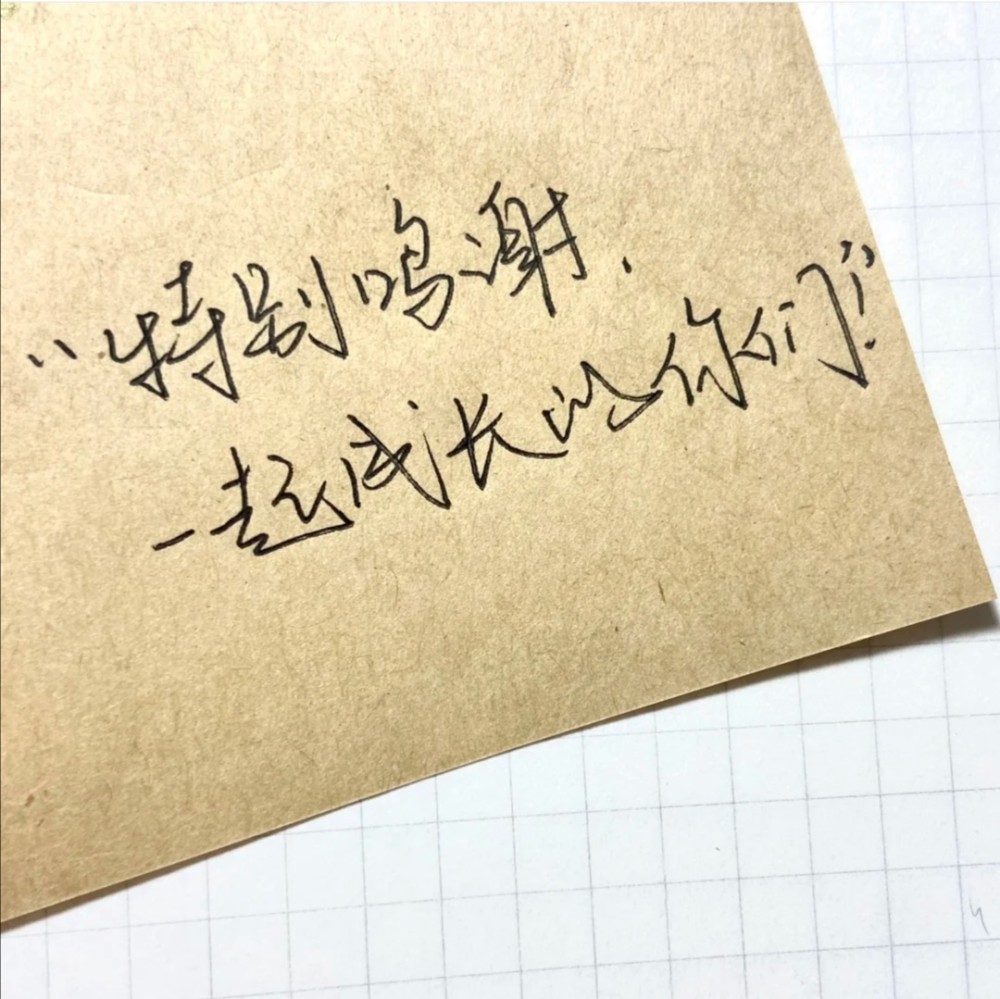 “特别鸣谢.
一起成长的你们!”